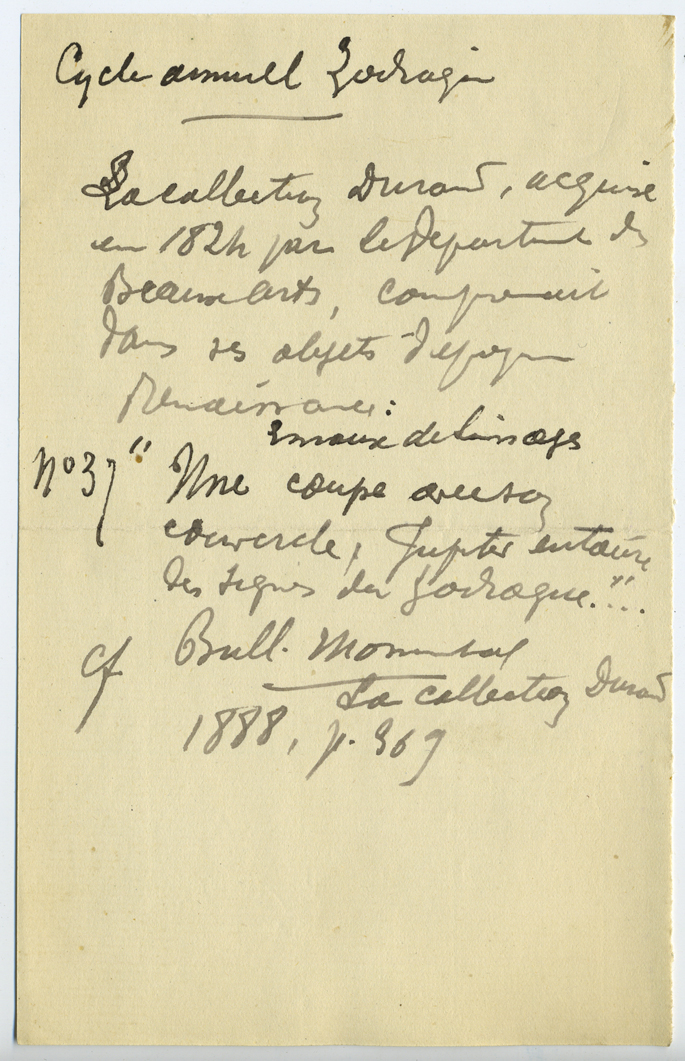 Cycle annuel Zodiaque
La collection Durand, acquise
en 1824 par le département des
Beaux arts, comprenait
dans ses objets d'époque
Renaissance :
Emaux de Limoges
N° 37 " Une coupe avec son
couvercle, Jupiter entouré
des signes du Zodiaque."...
cf Bull. Monumental
La collection Durand
1888, p. 369